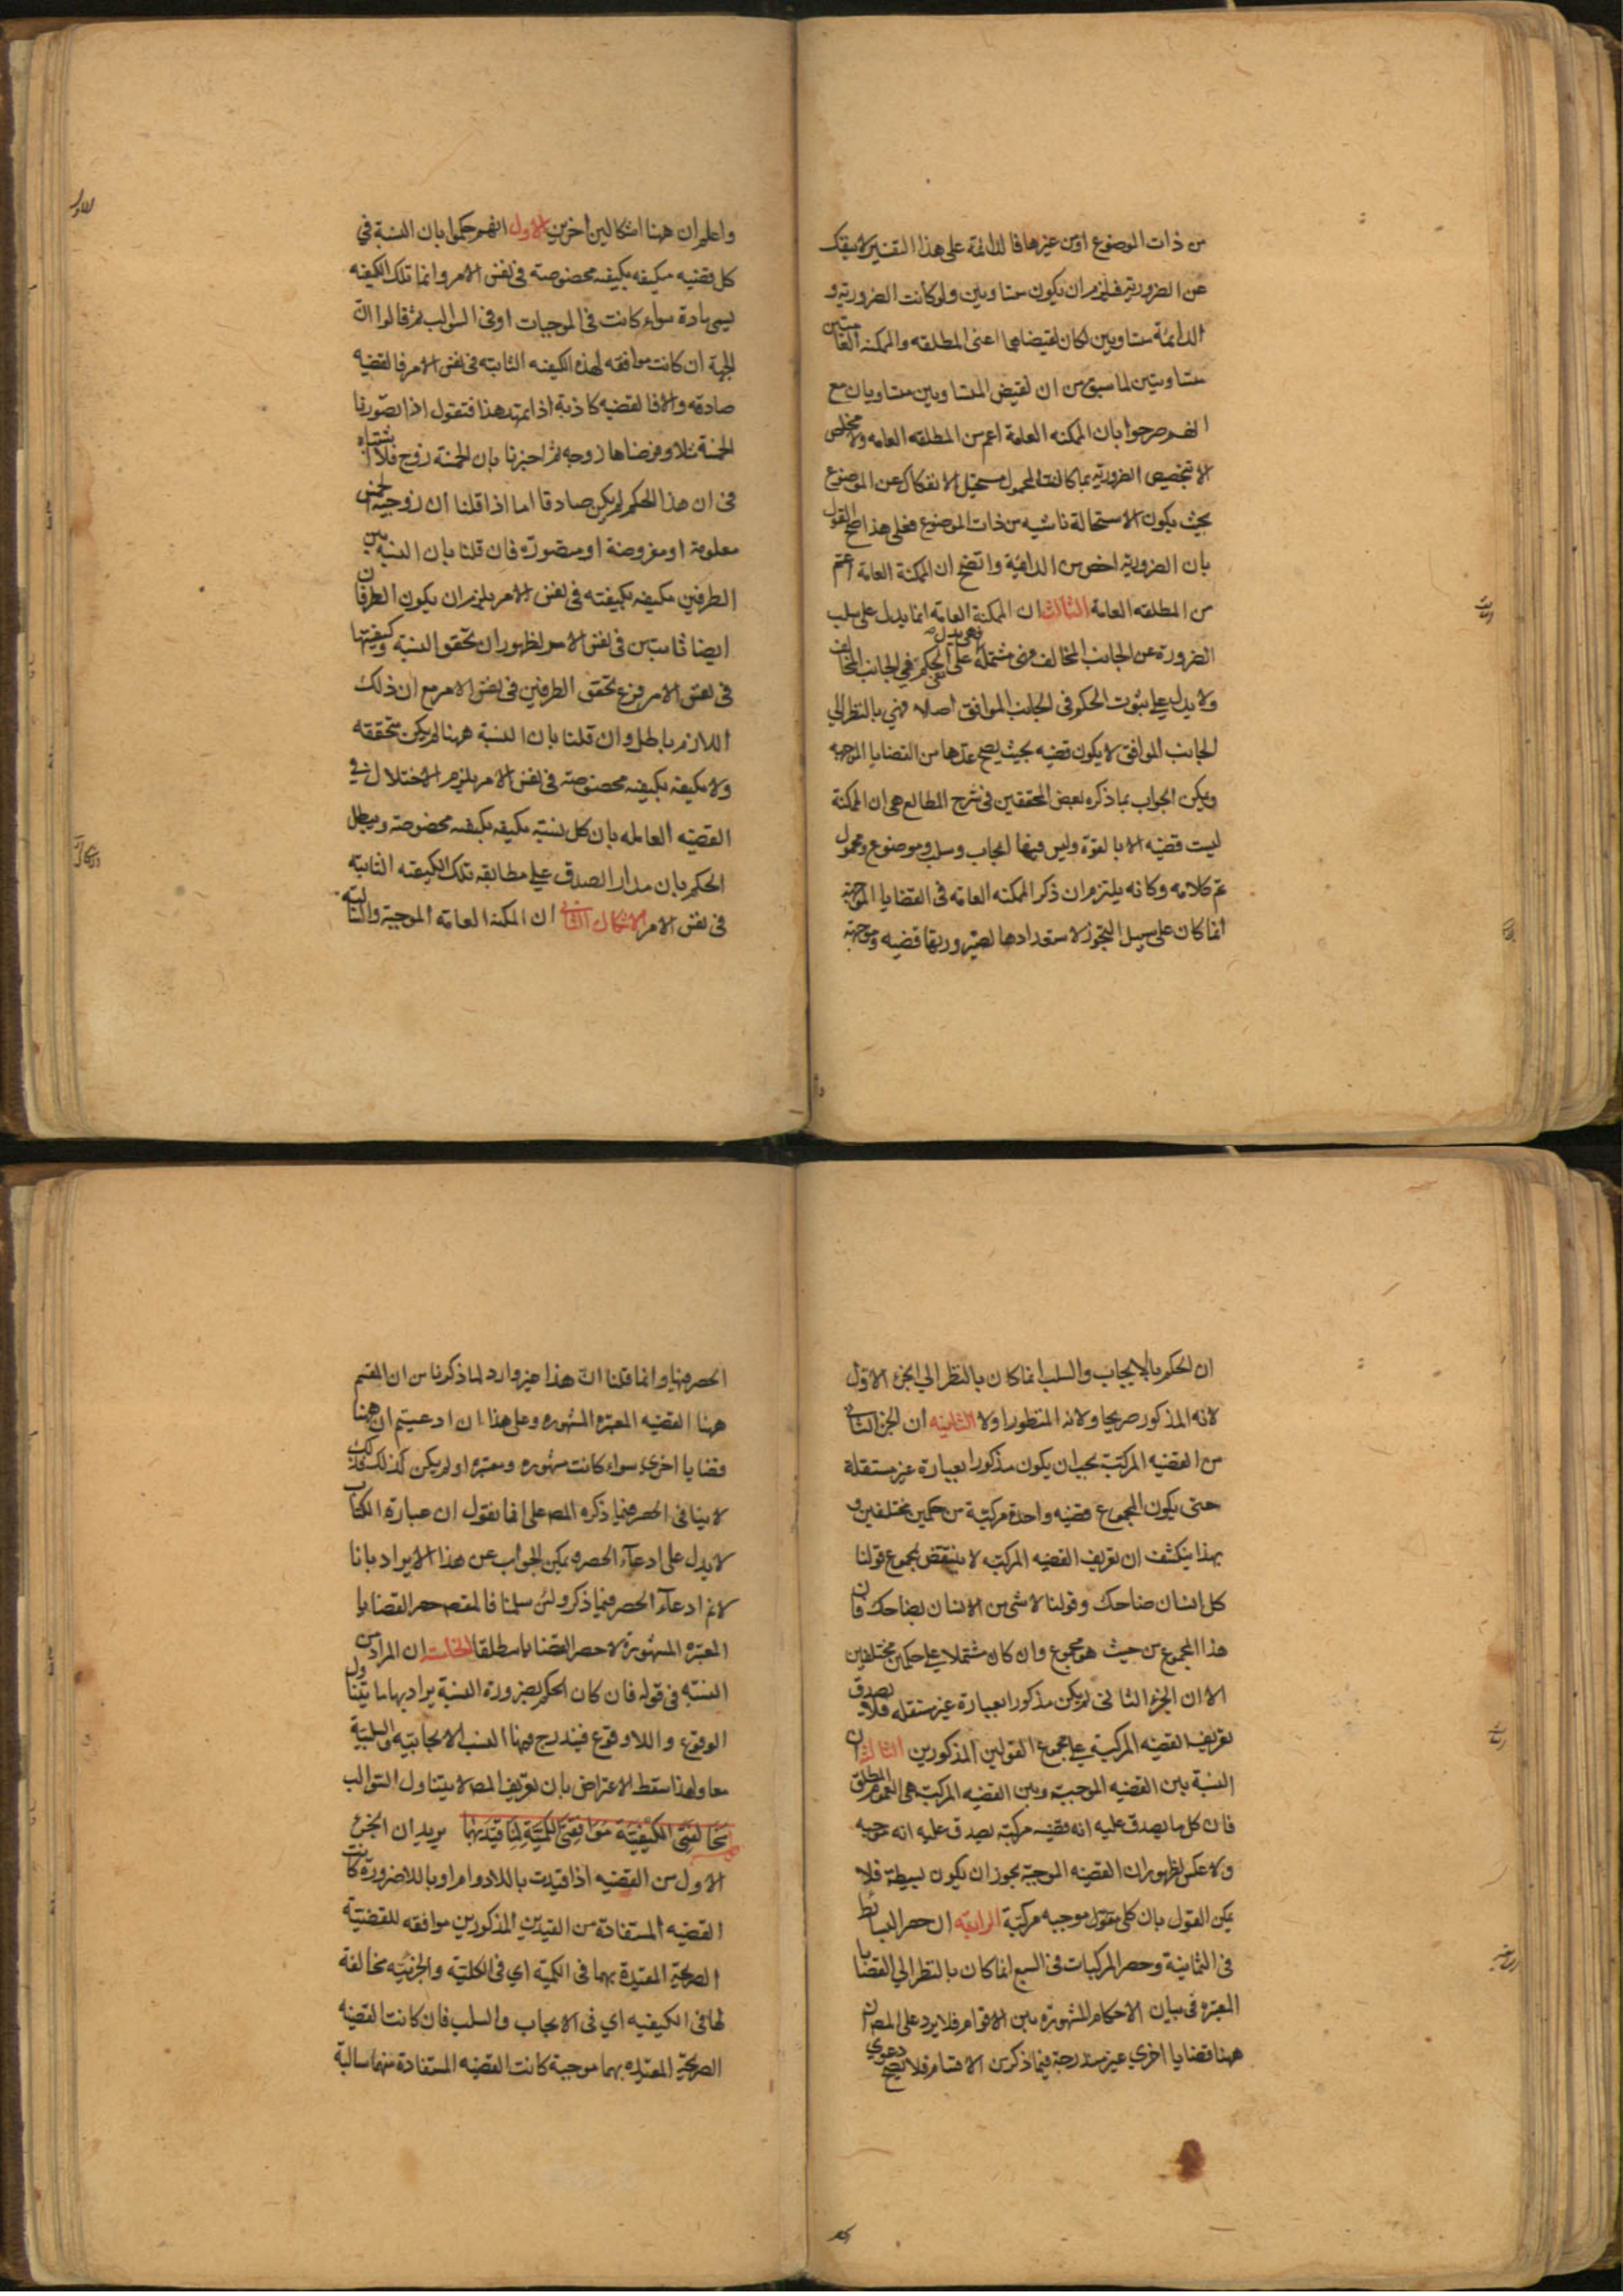 من ذات الموضوع او من غيرها فالدائمة على هذا التفسير لا ينفك
عن الضرورية فيلزم ان يكون متساويين ولو كانت الضرورية و
الدائمة متساويين لكان نقيضاهما اعنى المطلقه والممكنه العامتين
متساويتين لما سبق من ان نقيض المتساويين متساويان مع
انهم صرحوا بان الممكنه العامة اعم من المطلقه العامه ولا مخلص
الا بتخصيص الضرورية بما كانت المحمول مستحيل الانفكاك عن الموضوع
بحيث يكون الاستحالة ناشيه من ذات الموضوع فعلى هذا صح القول
بان الضرورية اخص من الدائمة واتضح ان الممكنة العامة اعم
من المطلقه العامة الثالث ان الممكنة العامة انما يدل على سلب
الضرورة عن الجانب المخالف فهى مشتملة على الحكم فى الجانب المخالف
ولا يدل على ثبوت الحكم فى الجانب الموافق اصلا فهي بالنظر الي
الجانب الموافق لا يكون قضيه بحيث يصح عدها من القضايا الموجهه
ويمكن الجواب بما ذكره بعض المحققين فى شرح المطالع هى ان الممكنة
ليست قضيه الا بالقوة وليس فيها ايجاب وسلب وموضوع ومحمول
تم كلامه وكانه يلتزم ان ذكر الممكنه العامة فى القضايا الموجهة
انما كان على سبيل التجوز لاستعدادها لصيرورتها قضيه وموجهة
واعلم ان ههنا اشكالين اخرين الاول انهم حكموا بان النسبة في
كل قضيه مكيفه بكيفيه مخصوصة فى نفس الامر وانما تلك الكيفيه
يسمى مادة سواء كانت فى الموجبات او فى السوالب ثم قالوا ان
الجهة ان كانت موافقه لهذه الكيفيه الثابته فى نفس الامر فالقضيه
صادقه والا فالقضيه كاذبة اذا تمهد هذا فنقول اذا تصورنا
الخمسة مثلا وفرضناها زوجه ثم اخبرنا بان الخمسة زوج فلا اشتباه
فى ان هذا الحكم لم يكن صادقا اما اذا قلنا ان زوجية الخمس
معلومة او مفروضة او متصورة فان قلنا بان النسبه بين
الطرفين مكيفه بكيفيته فى نفس الامر يلزم ان يكون الطرفان
ايضا ثابتين فى نفس الامر لظهور ان تحقق النسبة وكيفيتها
فى نفس الامر فرع تحقق الطرفين فى نفس الامر مع ان ذلك
اللازم باطل وان قلنا بان النسبة ههنا لم يكن متحققه
ولا مكيفه بكيفيه مخصوصة فى نفس الامر يلزم الاختلال في
القضيه العامله بان كل نسبته مكيفه بكيفيه مخصوصة ويبطل
الحكم بان مدار الصدق على مطابقه تلك الكيفيه الثابته
فى نفس الامر الاشكال الثانى ان الممكنة العامه الموجبة والسالبه
ان الحكم بالايجاب والسلب انما كان بالنظر الي الجزء الاول
لانه المذكور صريحا ولانه المنظور اولا الثانيه ان الجزء الثانى
من القضيه المركبة يجب ان يكون مذكورا بعبارة غير مستقلة
حتى يكون المجموع قضيه واحدة مركبة من حكمين مختلفين و
بهذا ينكشف ان تعريف القضيه المركبه لا ينتقض بمجموع قولنا
كل انسان ضاحك وقولنا لا شى من الانسان بضاحك فان
هذا المجموع من حيث هو مجموع وان كان مشتملا على حكمين مختلفين
الا ان الجزء الثانى لم يكن مذكورا بعبارة غير مستقله فلا يصدق
تعريف القضيه المركبة على مجموع القولين المذكورين الثالث ان
النسبة بين القضيه الموجهة وبين القضيه المركبة هى العموم المطلق
فان كل ما يصدق عليه انه قضيه مركبة يصدق عليه انه موجهه
ولا عكس لظهور ان القضيه الموجهة يجوز ان يكون بسيطة فلا
يمكن القول بان كل موجهه مركبة الرابعه ان حصر البسائط
فى الثمانية وحصر المركبات فى السبع انما كان بالنظر الي القضايا
المعتبره فى بيان الاحكام المشهورة بين الاقوام فلا يرد على المصـ ان
ههنا قضايا اخرى غير مندرجة فيما ذكر من الاقسام فلا يصح دعوى
الحصر فيها وانما قلنا ان هذا غير وارد لما ذكرنا من ان المقسم
ههنا القضيه المعتبره المشهوره وعلى هذا ان ادعيتم ان ههنا
قضايا اخرى سواء كانت مشهوره ومعتبره او لم يكن كذلك فذلك
لا ينافى الحصر فيما ذكره المصـ على انا نقول ان عبارة الكتاب
لا يدل على ادعآء الحصر ويمكن الجواب عن هذا الايراد بانا
لا نم ادعآء الحصر فيما ذكر ولئن سلمنا فالمقصـ حصر القضايا
المعتبره المشهورة لا حصر القضايا مطلقا الخامسة ان المراد من
النسبة فى قوله فان كان الحكم بضرورة النسبة يراد بها ما يتناول
الوقوع واللاوقوع فيندرج فيها النسب الايجابيه والسلبية
معا ولهذا سقط الاعتراض بان تعريف المصـ لا يتناول السوالب
مخالفتى الكيفية موافقتى الكمية لما قيد بهما يريد ان الجزء
الاول من القضيه اذا قيدت باللادوام او باللاضرورة كانت
القضيه المستفادة من القيدين المذكورين موافقه للقضية
الصريحة المقيدة بهما فى الكمية اي فى الكلية والجزئيه مخالفة
لها فى الكيفيه اي فى الايجاب والسلب فان كانت القضيه
الصريحة المقيده بهما موجبة كانت القضيه المستفادة منهما سالبة